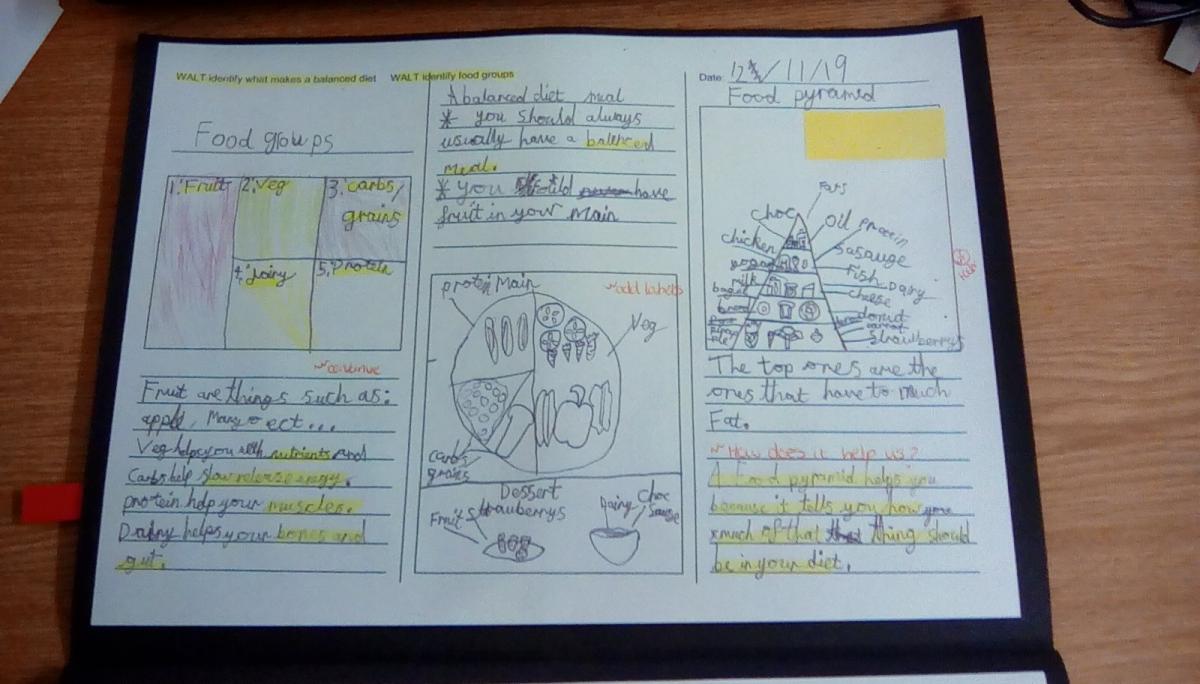 WALT identify what makes a balanced diet WALT identify food groups
Date: 12/11/19
Food groups
1. Fruit
2. Veg
3. carbs/
grains
4. Dairy
5. Protein
Fruit are things such as:
ect...
Veg helps you with nutrients and
Carbs help slow release
protein help your muscles.
helps your bones and
gut.
A balanced diet meal
* you should always
usually have a
meal.
* you have
fruit in your main
protein Main
~add labels
Veg
carbs
grains
Dessert
Fruit Strauberrys
Dairy Choc
Sause
Food pyramid
Fats
choc
Oil
Protein
chicken
Sasauge
Fish
Dairy
milk
cheese
donut
Strawberrys
The top ones are the
ones that have to much
Fat.
~How does it help us?
A Food pyramid helps you
because it tells you how
much of that thing should
be in your diet.